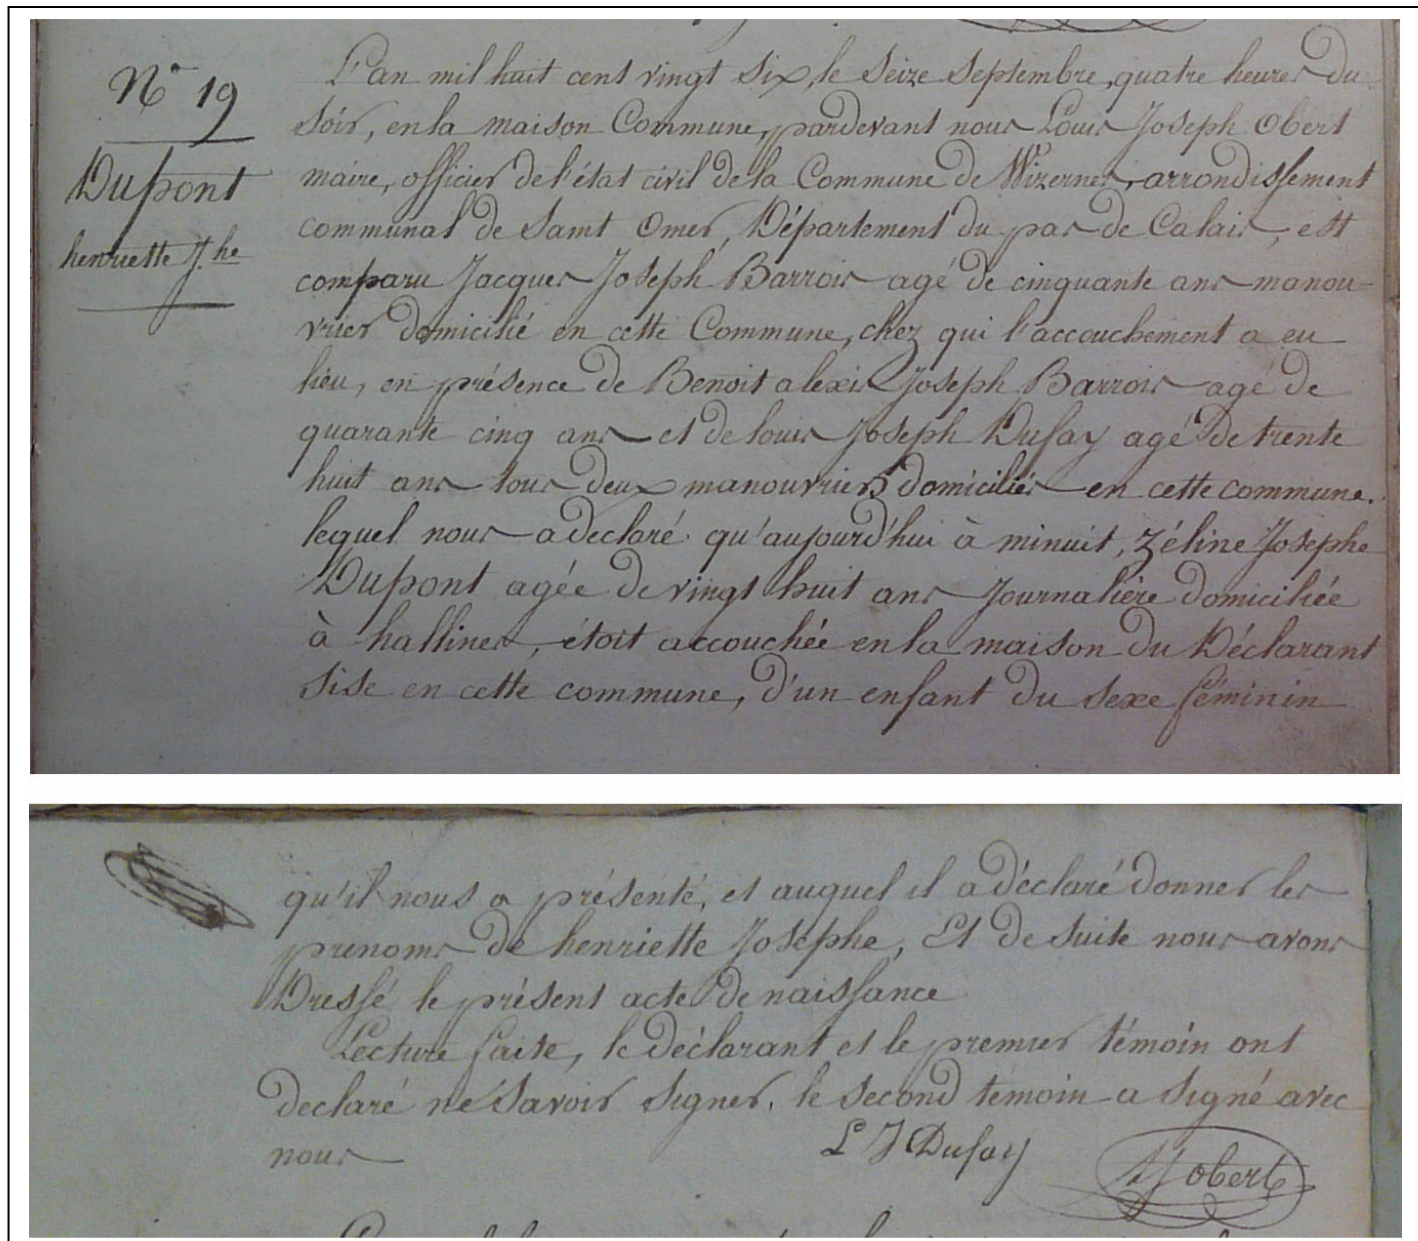 N° 19
Dupont
henriette J.he
L'an mil huit cent vingt six, le seize septembre, quatre heures du
soir, en la maison Commune, pardevant nous Louis Joseph Obert
maire, officier de l'état civil de la Commune de Wizernes, arrondissement
communal de Saint Omer, Département du pas de Calais, est
comparu Jacques Joseph Barrois agé de cinquante ans manou-
vrier domicilié en cette Commune, chez qui l'accouchement a eu
lieu, en présence de Benoit alexis Joseph Barrois agé de
quarante cinq ans et de louis Joseph Dufay agé de trente
huit ans tous deux manouvriers domiciliés en cette commune.
lequel nous a declaré qu'aujourd'hui à minuit, zéline Josephe
Dupont agée de vingt huit ans Journalière domiciliée
à hallines, étoit accouchée en la maison du Déclarant
sise en cette commune, d'un enfant du sexe féminin
qu'il nous a présenté, et auquel il a déclaré donner les
prenoms de henriette Josephe, Et de suite nous avons
Dressé le présent acte de naissance
Lecture faite, le déclarant et le premier témoin ont
declaré ne savoir signer, le second témoin a signé avec
nous
L J Dufay
LJ obert